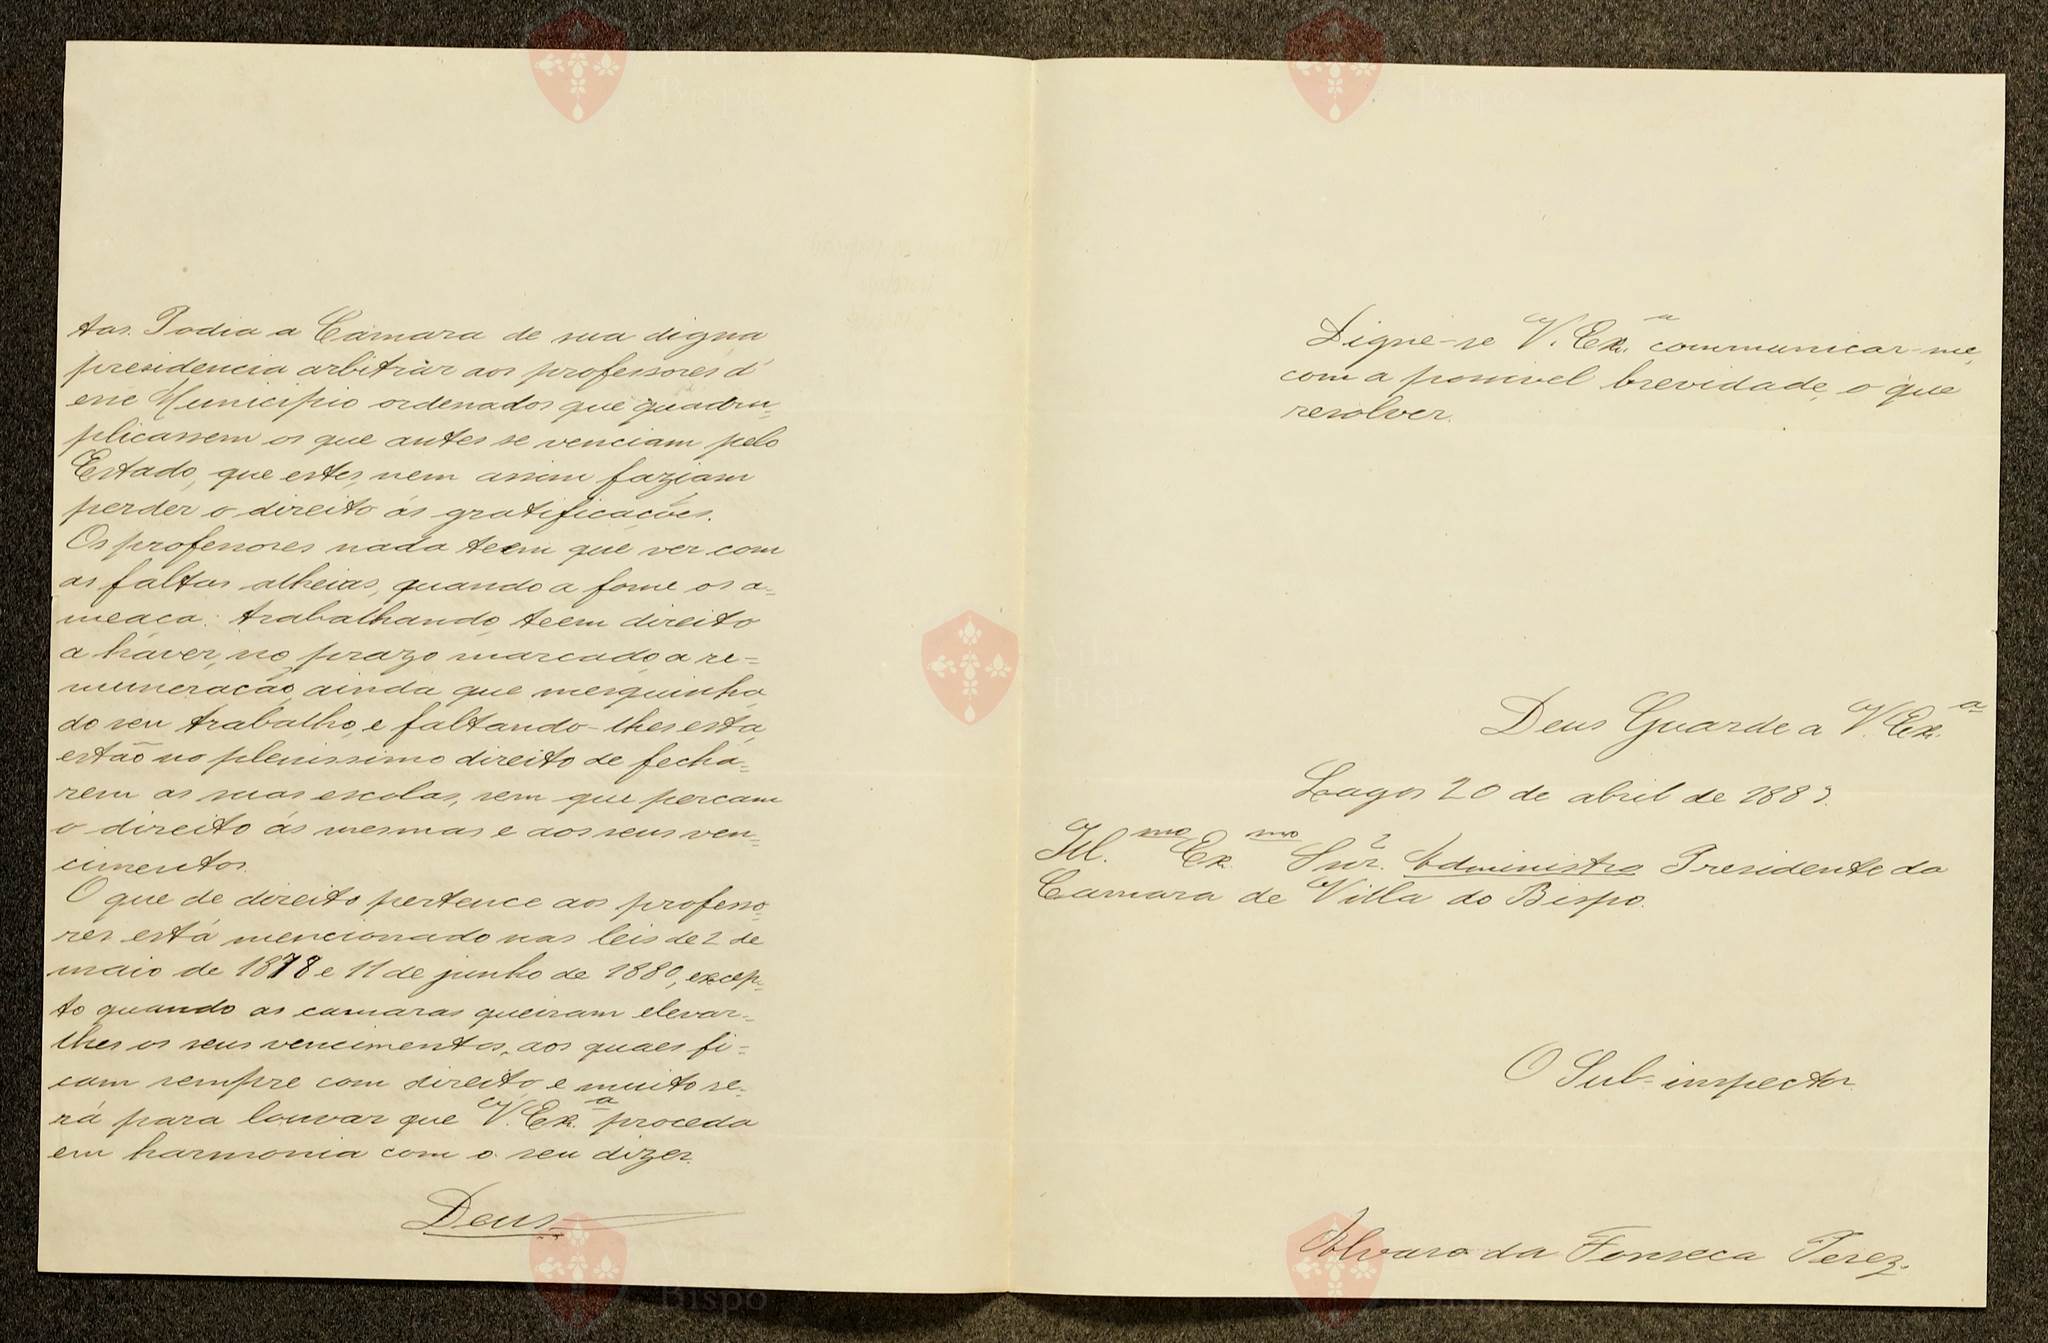 tas. Podia a Camara de sua digna
presidencia arbitrar aos professores d'
esse Municipio ordenados que quadru-
plicassem os que antes se venciam pelo
Estado, que estes nem assim faziam
perder o direito ás gratificações.
Os professores nada teem que ver com
as faltas alheias, quando a fome os a-
meaça: trabalhando, teem direito
a haver, no prazo marcado, a re-
muneração, ainda que mesquinha,
do seu trabalho, e faltando-lhes esta,
estão no plenissimo direito de fecha-
rem as suas escolas, sem que percam
o direito ás mesmas e aos seus ven-
cimentos.
O que de direito pertence aos professo-
res está mencionado nas leis de 2 de
maio de 1878 e 11 de junho de 1880, excep-
to quando as camaras queiram elevar-
lhes os seus vencimentos, aos quaes fi-
cam sempre com direito, e muito se-
rá para louvar que V. Ex.ª proceda
em harmonia com o seu dizer.
Deus
Digne-se V. Ex.ª communicar-me,
com a possivel brevidade, o que
resolver.
Deus Guarde a V. Ex.ª
Lagos 20 de abril de 1883.
Ill.mo Ex.mo Snr. Administro Presidente da
Camara de Villa do Bispo.
O Sub-inspector
Alvaro da Fonseca Perez.
Bispo